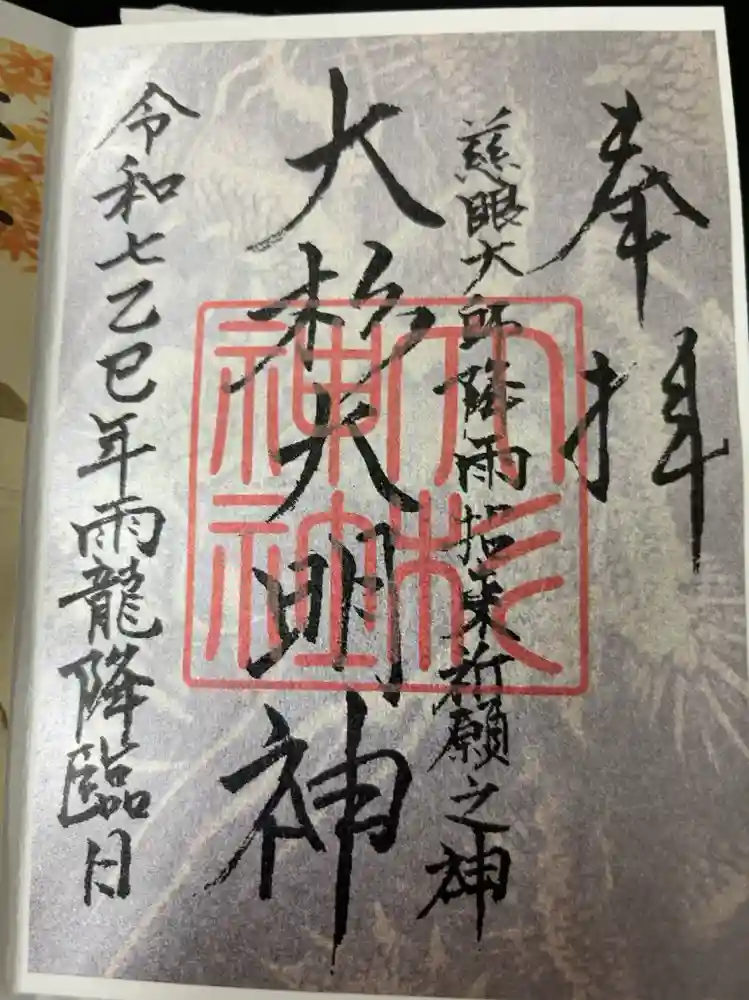 奉拝
慈眼大師降雨招来祈願之神
大杉大明神
大杉神社
令和七乙巳年雨龍降臨日